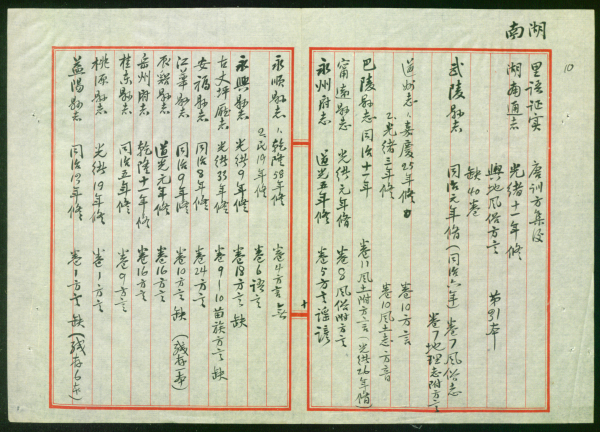 湖南
10
里語证实 唐训方集侵
湖南通志 光绪十一年修 第31本
與地风俗方言
缺40卷
武陵縣志 同治元年脩(同治六年) 卷7风俗志
卷7地理志附方言
道州志 1.嘉慶25年修 卷10方言
2.光绪三年修 卷10風土志方音
巴陵縣志 同治十一年 卷11風土附方言(光绪26年脩)
甯遠縣志 光绪元年脩 卷8風俗附方言
永州府志 道光五年修 卷5方言謡諺
十
永順縣志 1.乾隆58年修 卷4方言
2.民19年修 卷6語言
永興縣志 光绪9年修 卷18方言 缺
古丈坪廳志 光绪33年修 卷9—10苗族方言 缺
安福縣志 同治8年修 卷24方言
江華縣志 同治9年修 卷10方言 缺(残存一本)
辰谿縣志 道光元年修 卷16方言
岳州府志 乾隆十一年修 卷16方言
桂东縣志 同治五年修 卷9方言
桃源縣志 光绪19年修 卷1方言
益陽縣志 同治13年修 卷1方言 缺(残存6本)